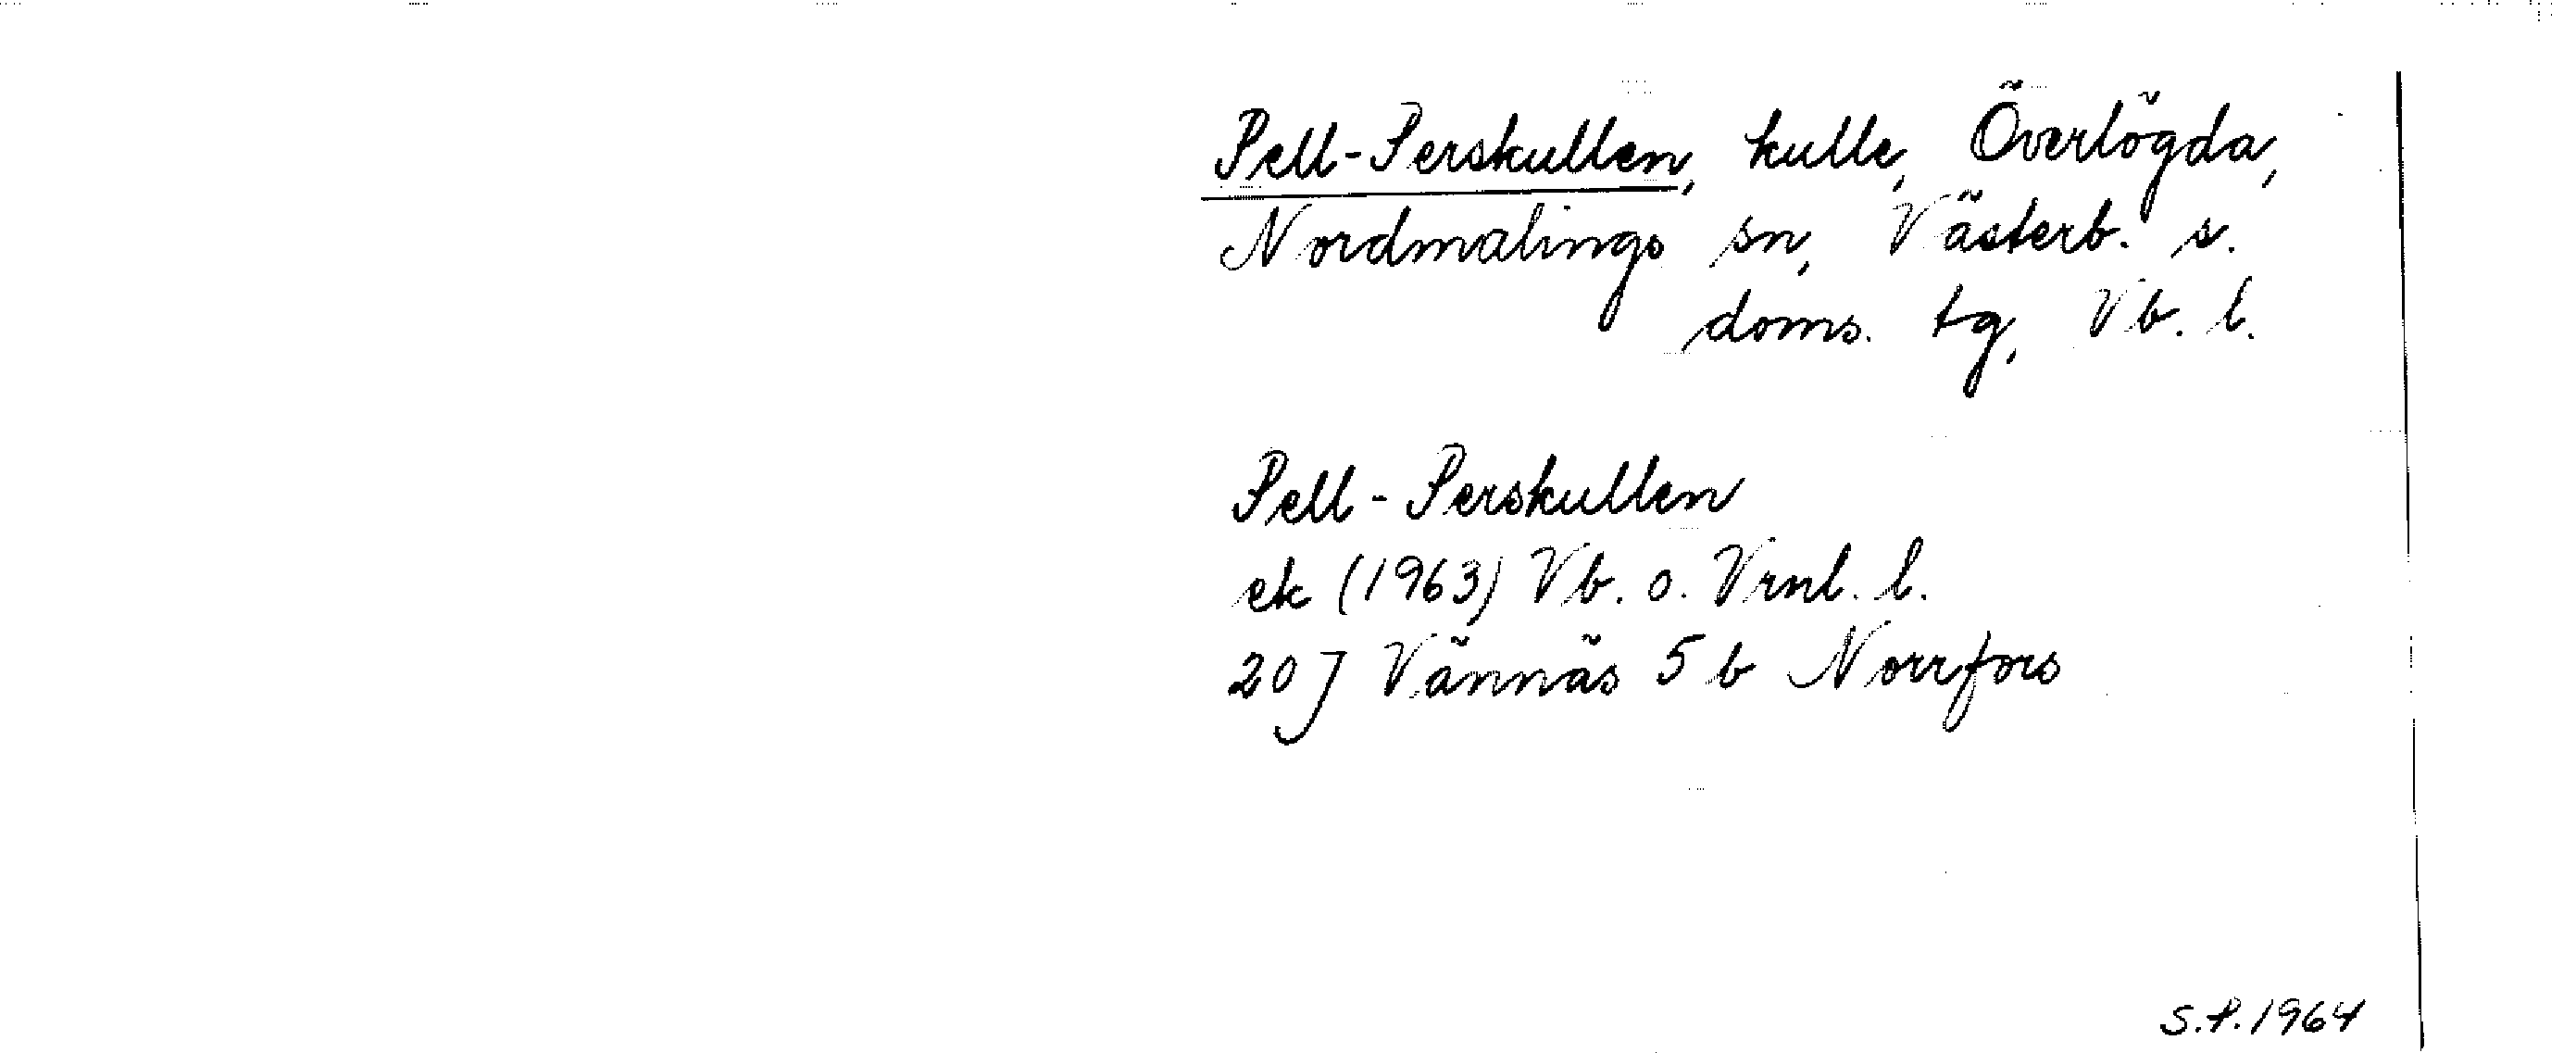 Pell-Perskullen, kulle, Överlögda,
Nordmalings sn, Västerb. s.
doms. tg, Vb. l.
Pell-Perskullen
ek (1963) Vb. o. Vrnl. l.
20 J Vännäs 5 b Norrfors
S.P. 1964